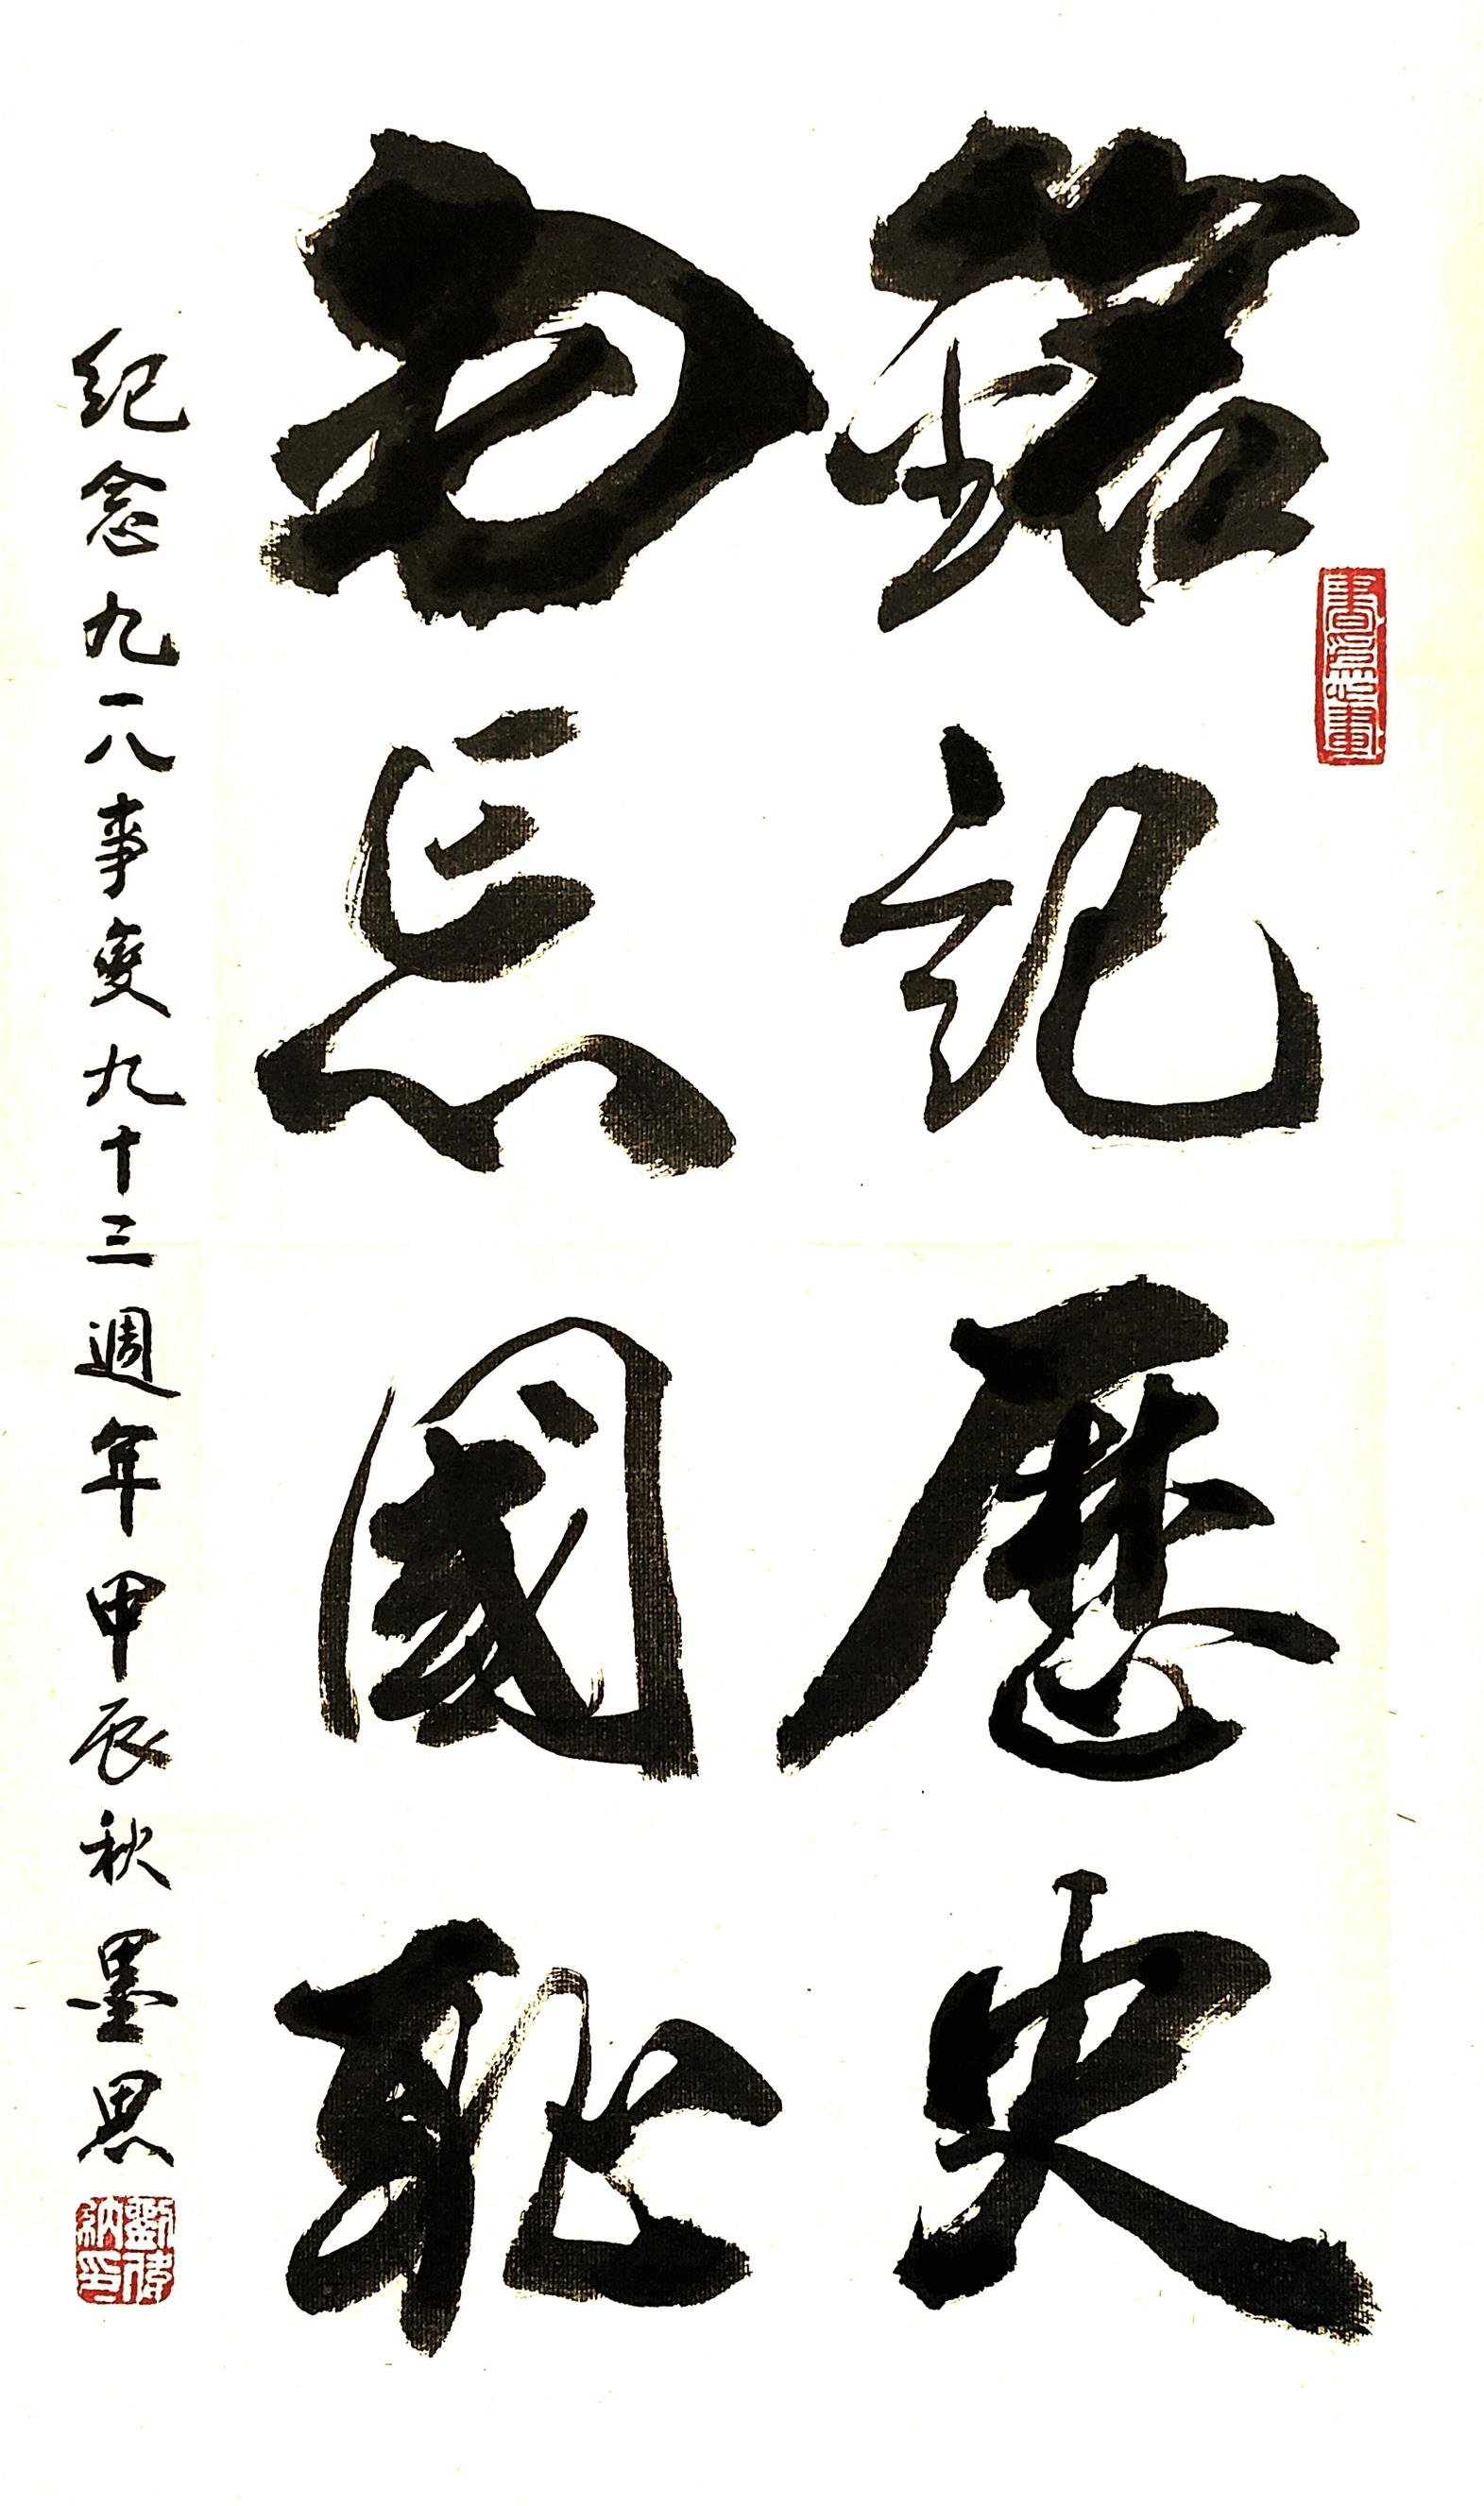 銘記歷史
勿忘國耻
紀念九一八事變九十三週年甲辰秋墨思